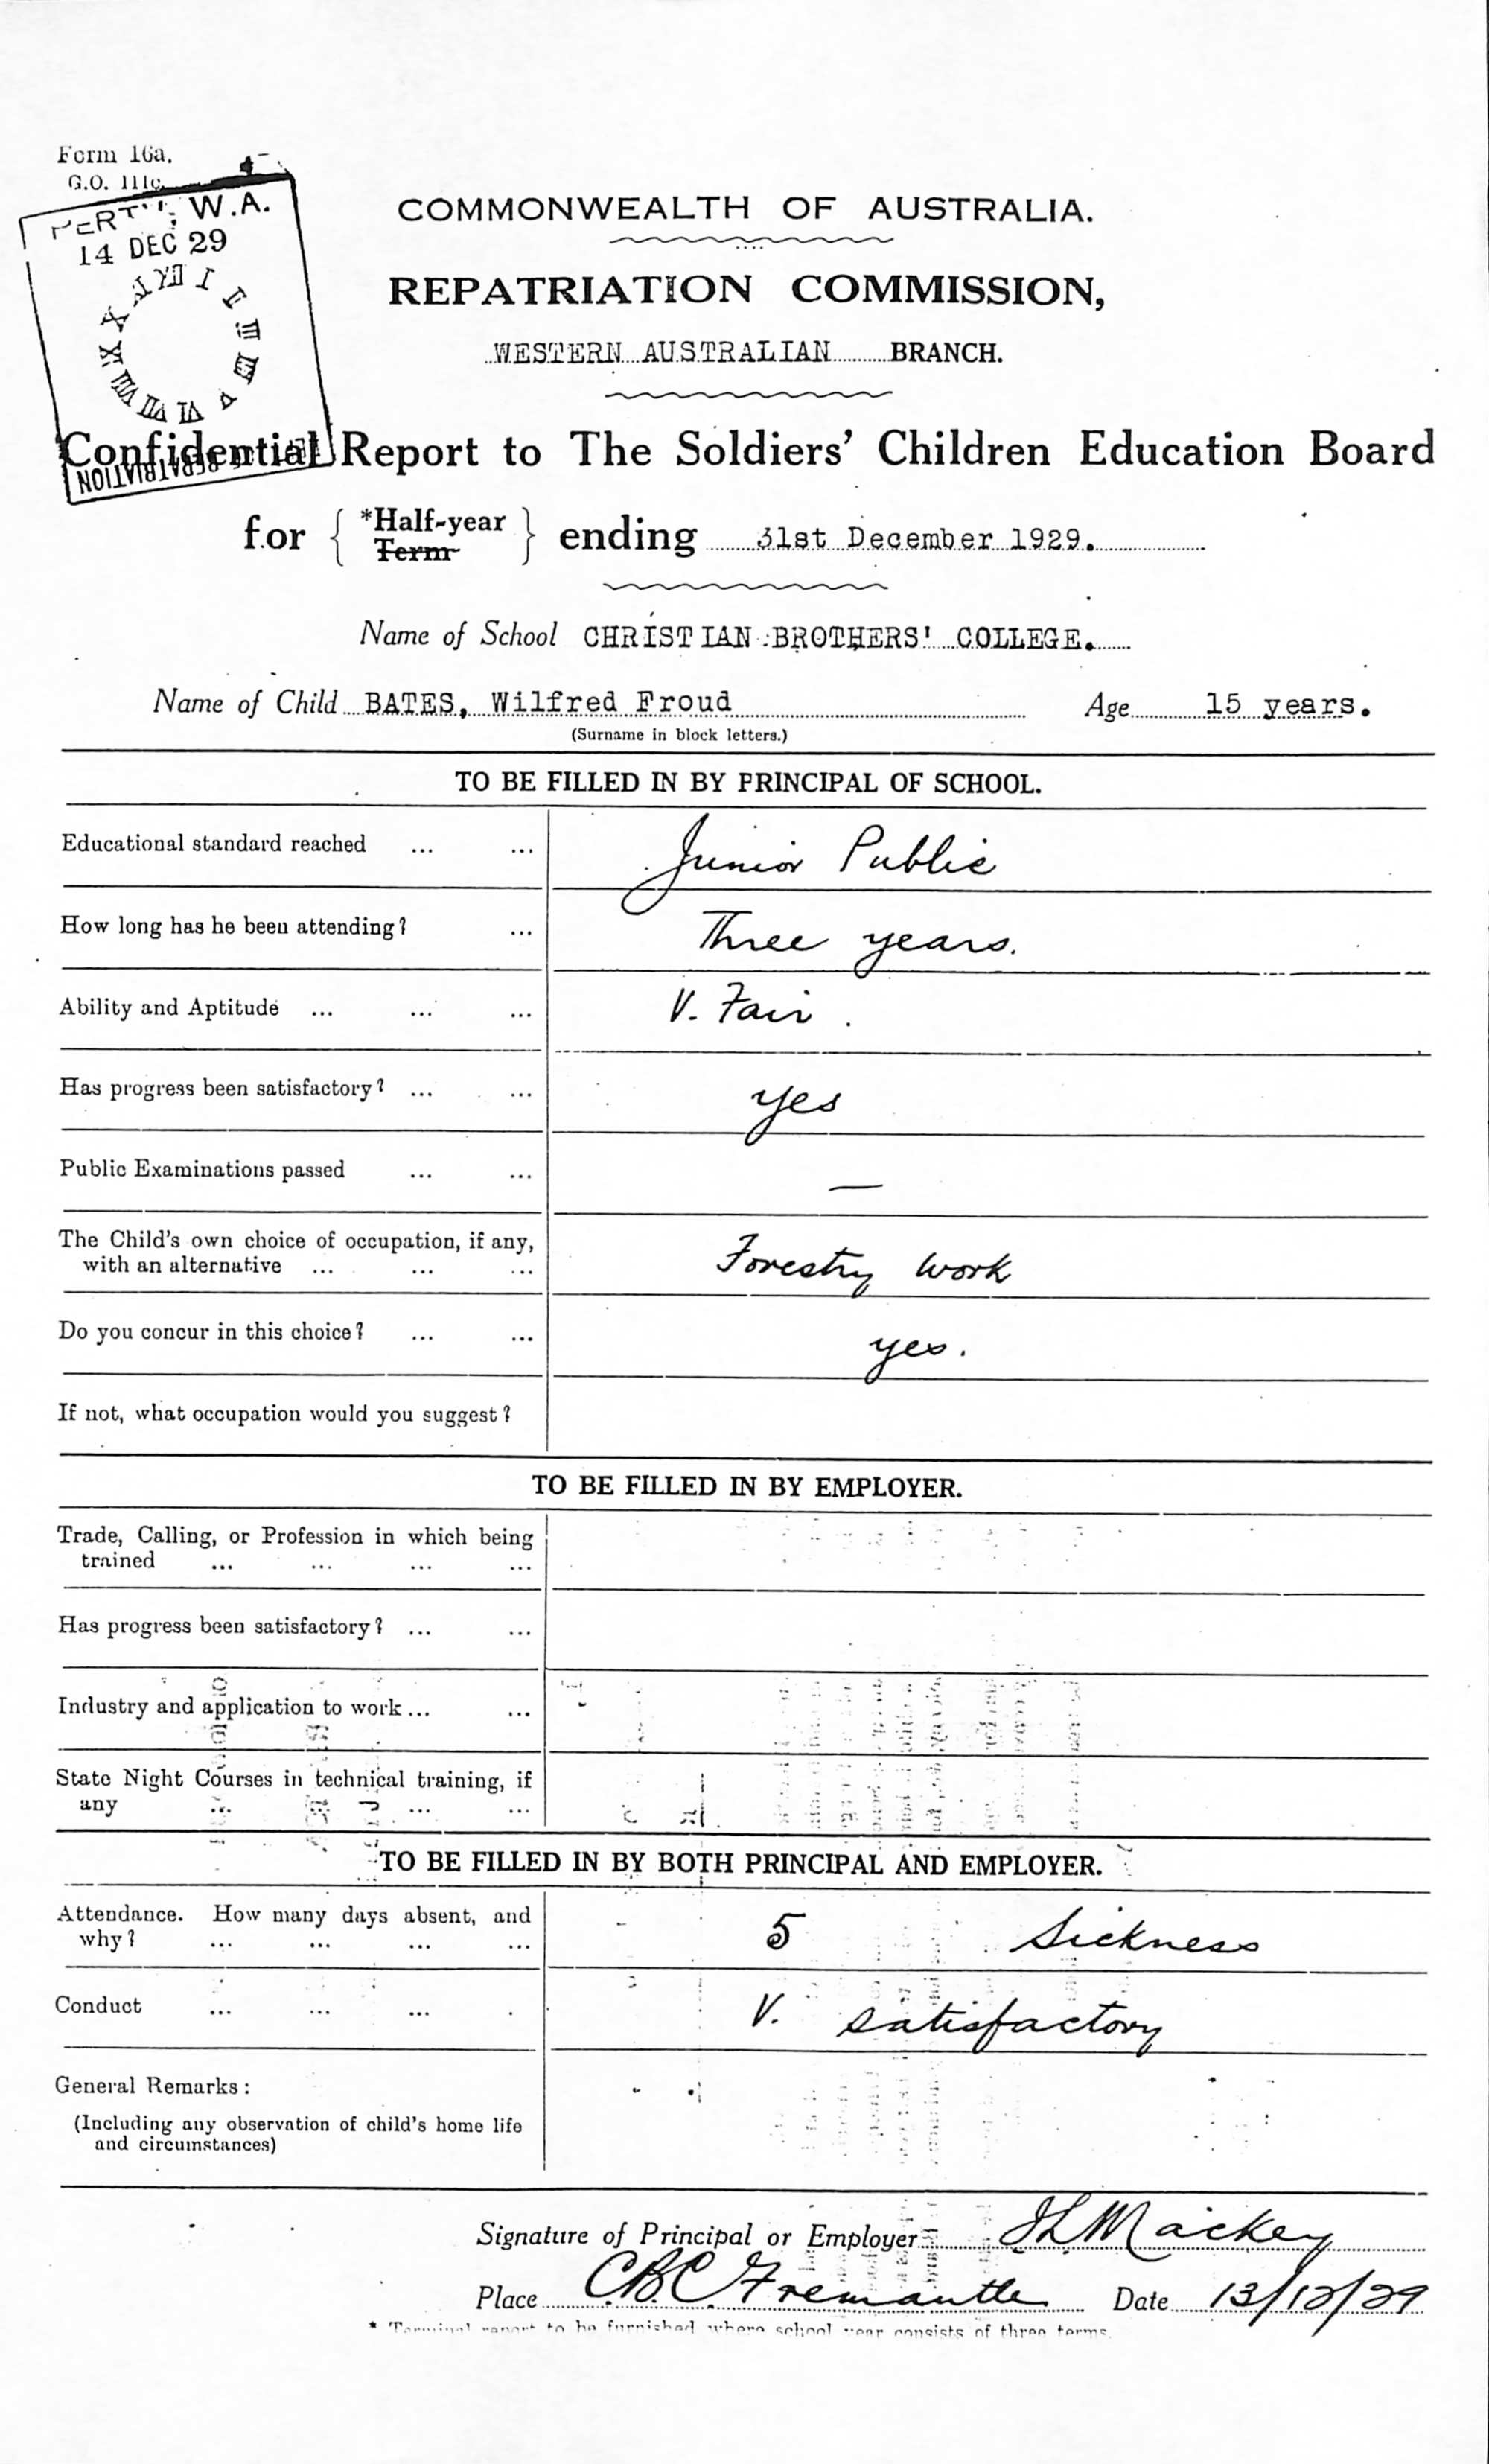 Form 16a.
G.O. 111c.
PERTH, W.A.
14 DEC 29
REPATRIATION
COMMONWEALTH OF AUSTRALIA.
REPATRIATION COMMISSION,
WESTERN AUSTRALIAN BRANCH.
Confidential Report to The Soldiers' Children Education Board
for { *Half-year Term } ending 31st December 1929.
Name of School CHRISTIAN BROTHERS' COLLEGE.
Name of Child BATES, Wilfred Froud Age 15 years.
(Surname in block letters.)
TO BE FILLED IN BY PRINCIPAL OF SCHOOL.
Educational standard reached ... ... Junior Public
How long has he been attending? ... Three years.
Ability and Aptitude ... ... ... V. Fair.
Has progress been satisfactory? ... ... yes
Public Examinations passed ... ... —
The Child's own choice of occupation, if any,
with an alternative ... ... ... Forestry work
Do you concur in this choice? ... ... yes.
If not, what occupation would you suggest?
TO BE FILLED IN BY EMPLOYER.
Trade, Calling, or Profession in which being
trained ... ... ... ...
Has progress been satisfactory? ... ...
Industry and application to work... ...
State Night Courses in technical training, if
any ... ... ... ...
TO BE FILLED IN BY BOTH PRINCIPAL AND EMPLOYER.
Attendance. How many days absent, and
why? ... ... ... ... 5 Sickness
Conduct ... ... ... . V. satisfactory
General Remarks:
(Including any observation of child's home life
and circumstances)
Signature of Principal or Employer JLMackey
Place C.B.C. Fremantle Date 13/12/29
* Terminal report to be furnished where school year consists of three terms.